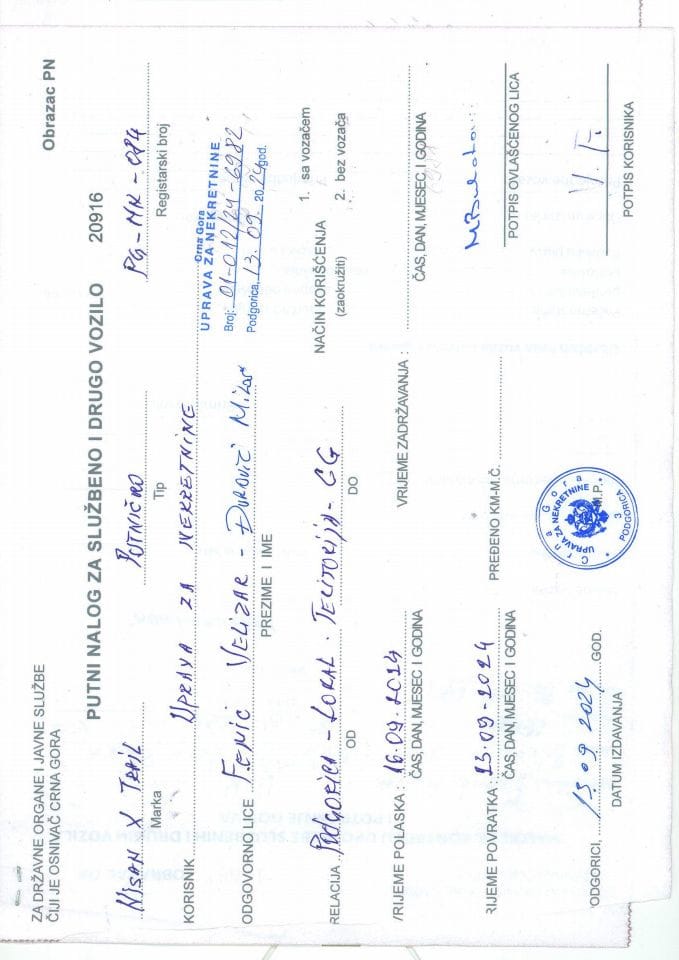 ZA DRŽAVNE ORGANE I JAVNE SLUŽBE
ČIJI JE OSNIVAČ CRNA GORA
Obrazac PN
PUTNI NALOG ZA SLUŽBENO I DRUGO VOZILO 20916
NISAN X TRAIL PUTNIČKO PG-MK-084
Marka Tip Registarski broj
KORISNIK UPRAVA ZA NEKRETNINE
Crna Gora
UPRAVA ZA NEKRETNINE
Broj: 01-012/24-6982
Podgorica, 13.09. 2024 god.
ODGOVORNO LICE FEMIĆ VELIZAR - ĐUROVIĆ
PREZIME I IME
NAČIN KORIŠĆENJA
(zaokružiti)
1. sa vozačem
2. bez vozača
RELACIJA PODGORICA - LOKAL. TERITORIJA - CG
OD DO
VRIJEME POLASKA : 16.09.2024 VRIJEME ZADRŽAVANJA :
ČAS, DAN, MJESEC I GODINA ČAS, DAN, MJESEC I GODINA
RIJEME POVRATKA : 23.09.2024 PREĐENO KM-M.Č.
ČAS, DAN, MJESEC I GODINA
POTPIS OVLAŠĆENOG LICA
ODGORICI, 13 09 2024 GOD.
DATUM IZDAVANJA
M.P.
Crna Gora
UPRAVA ZA NEKRETNINE
3
PODGORICA
V. F.
POTPIS KORISNIKA